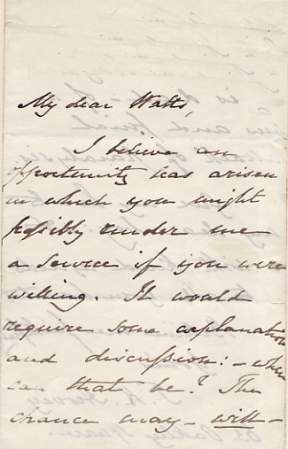 My dear Watts,
I believe an
opportunity has arisen
in which you might
possibly render me
a service if you were
willing. It would
require some explanation
and discussion: – when
can that be? The
chance may – will –